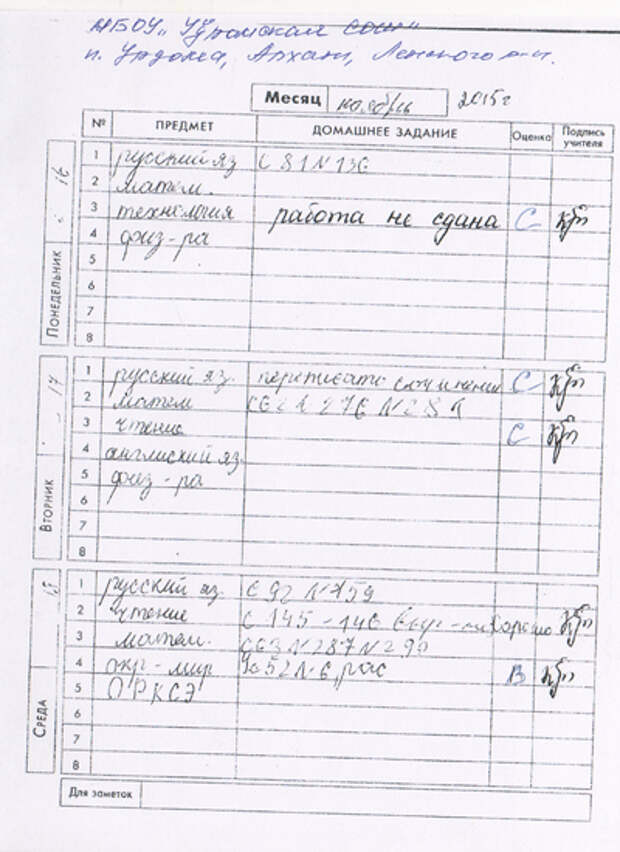 МБОУ "Урдомская СОШ"
п. Урдома, Архан, Ленского р-н.
Месяц ноябрь 2015 г
№ ПРЕДМЕТ ДОМАШНЕЕ ЗАДАНИЕ Оценка Подпись учителя
ПОНЕДЕЛЬНИК 16
1 русский яз С 81 N 136
2 матем.
3 технология работа не сдана С
4 физ-ра
5
6
7
8
ВТОРНИК 17
1 русский яз. переписать сочинение С
2 матем С62 N 276 N 281
3 чтение С
4 англиский яз.
5 физ-ра
6
7
8
СРЕДА
1 русский яз. С 92 N 159
2 чтение С 145-146
3 матем. С63 N 287 N 290
4 окр-мир 52 N 6, рас В
5 ОРКСЭ
6
7
8
Для заметок